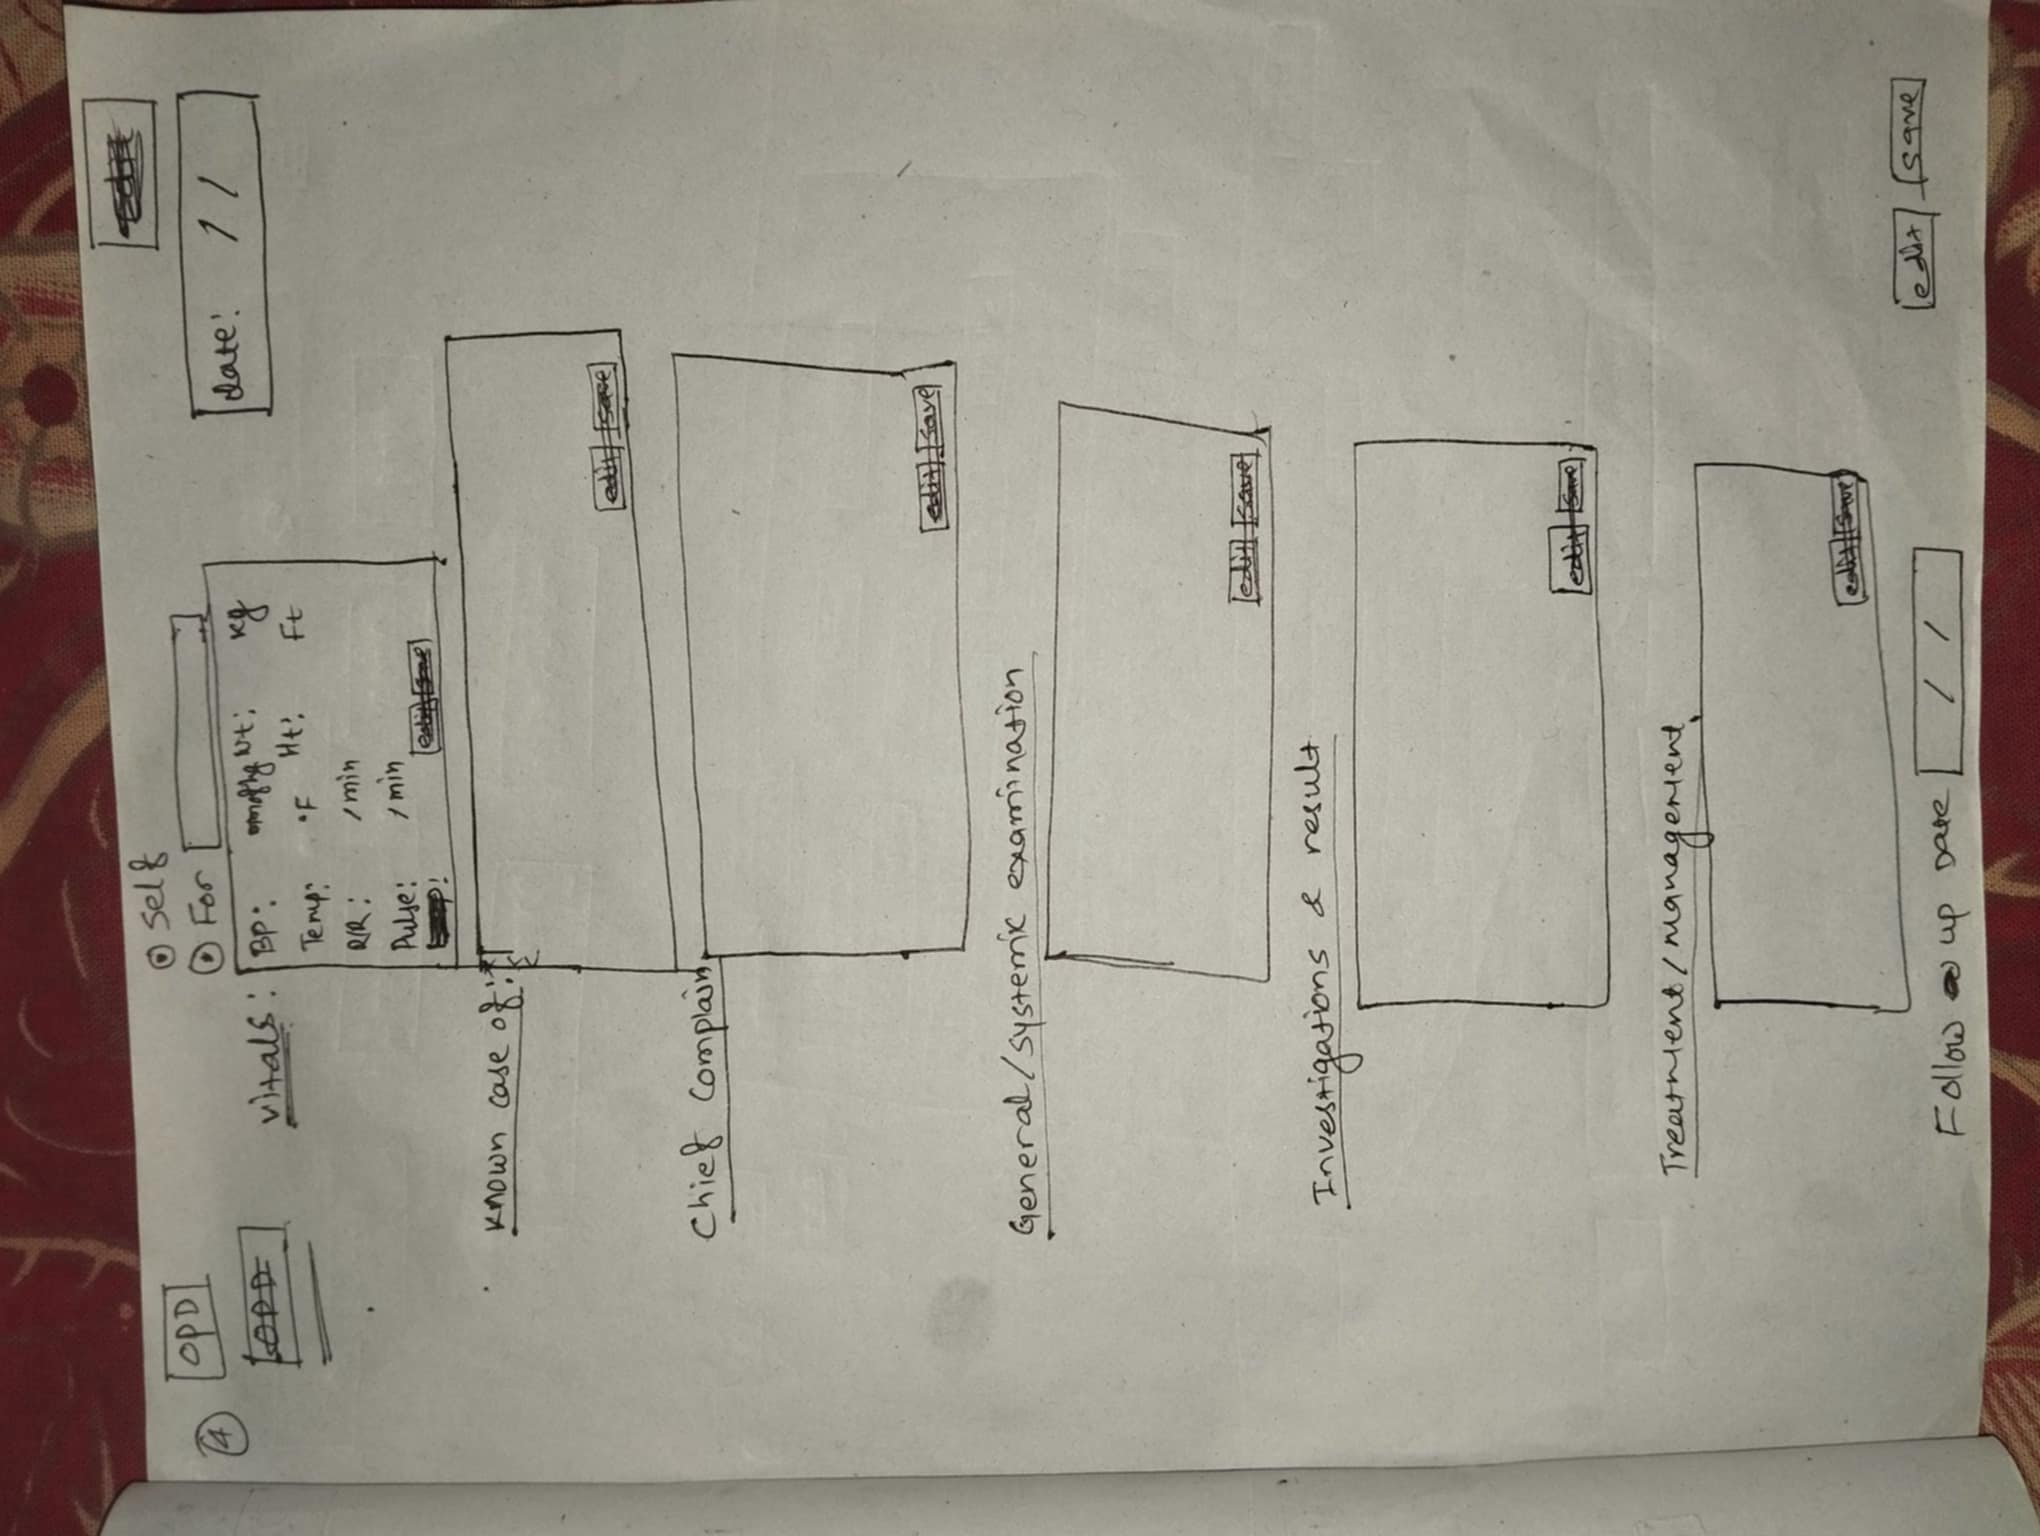 ④ OPD
◉ Self
◉ For
edit
date: / /
OPD
vitals:
BP: mmofhg Wt: kg
Temp: °F Ht: Ft
R/R: /min
Pulse: /min
edit save
Known case of:
edit save
Chief Complain
edit save
General/systemic examination
edit save
Investigations & result
edit save
Treatment/management
edit save
Follow up Date / /
edit save